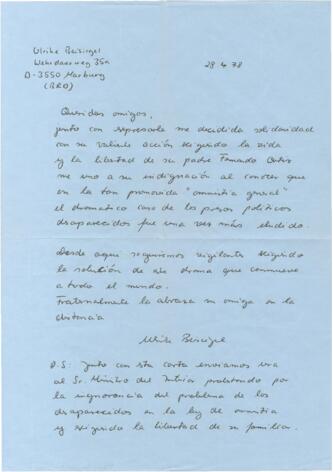 Ulrike Beisiegel
Wehrdaerweg 35a
D-3550 Marburg
(BRD)
29.4.78
Queridos amigos,
junto con expresarle mi decidida solidaridad
con su valiente acción exigiendo la vida
y la libertad de su padre Fernando Ortiz
me uno a su indignación al conocer que
en la tan promovida "amnistía general"
el dramático caso de los presos políticos
desaparecidos fue una vez más eludido.
Desde aquí seguiremos vigilantes exigiendo
la solución de ese drama que conmueve
a todo el mundo.
Fraternalmente la abraza su amiga en la
distancia
Ulrike Beisiegel
P.S: Junto con esta carta enviamos una
al Sr. Ministro del Interior protestando por
la ignorancia del problema de los
desaparecidos en la ley de amnistía
y exigiendo la libertad de su familiar.